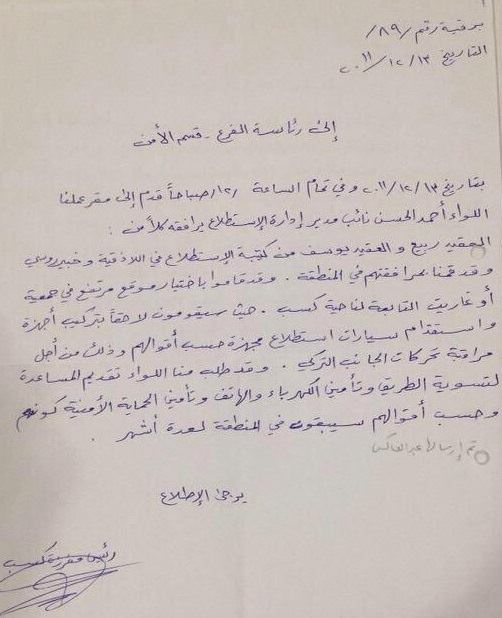 برقية رقم /٨٩/
التاريخ ١٣/١٢/٢٠١١
إلى رئاسة الفرع - قسم الأمن
بتاريخ ١٣/١٢/٢٠١١ وفي تمام الساعة /١٢/ صباحاً قدم إلى مقر عملنا
اللواء أحمد الحسن نائب مدير إدارة الإستطلاع يرافقه كلاً من :
العقيد ربيع و العقيد يوسف من كتيبة الإستطلاع في اللاذقية و خبير روسي
وقد قمنا بمرافقتهم في المنطقة . وقد قاموا باختيار موقع مرتفع في جمعية
أوغاريت التابعة لناحية كسب . حيث سيقومون لاحقاً بتركيب أجهزة
و استقدام سيارات استطلاع مجهزة حسب أقوالهم وذلك من أجل
مراقبة تحركات الجانب التركي . وقد طلب منا اللواء تقديم المساعدة
لتسوية الطريق وتأمين الكهرباء والهاتف وتأمين الحماية الأمنية كونهم
وحسب أقوالهم سيبقون في المنطقة لعدة أشهر .
تم إرسالها عبر الفاكس
يرجى الإطلاع
رئيس مفرزة كسب